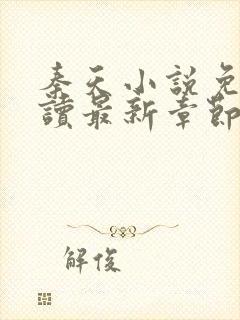 秦天小說免
讀最新章節
解俊